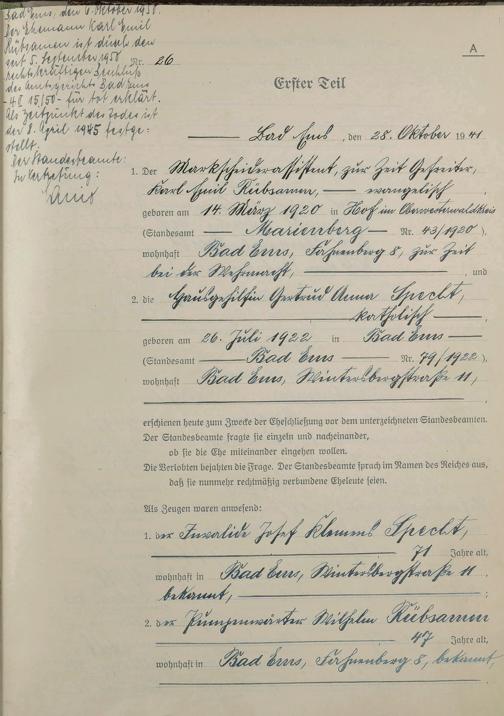 Bad Ems, den 6. Oktober 1950.
Der Ehemann Karl Emil
Rübsamen ist durch den
seit 5. September 1950
rechtskräftigen Beschluß
des Amtsgerichts Bad Ems
- 4 II 15/50 - für tot erklärt.
Als Zeitpunkt des Todes ist
der 8. April 1945 festge-
stellt.
Der Standesbeamte:
In Vertretung:
Nr. 26
A
Erster Teil
Bad Ems, den 28. Oktober 1941
1. Der Markscheiderassistent, zur Zeit Gefreiter,
Karl Emil Rübsamen, — evangelisch
geboren am 14. März 1920 in Hof im Oberwesterwaldkreis
(Standesamt — Marienberg — Nr. 43/1920)
wohnhaft Bad Ems, Fahnenberg 8, zur Zeit
bei der Wehrmacht, — , und
2. die Hausgehilfin Gertrud Anna Specht,
— katholisch —
geboren am 26. Juli 1922 in Bad Ems —
(Standesamt — Bad Ems — Nr. 79/1922),
wohnhaft Bad Ems, Wintersbergstraße 11,
erschienen heute zum Zwecke der Eheschließung vor dem unterzeichneten Standesbeamten.
Der Standesbeamte fragte sie einzeln und nacheinander,
ob sie die Ehe miteinander eingehen wollen.
Die Verlobten bejahten die Frage. Der Standesbeamte sprach im Namen des Reiches aus,
daß sie nunmehr rechtmäßig verbundene Eheleute seien.
Als Zeugen waren anwesend:
1. der Invalide Josef Klemens Specht,
— 71 Jahre alt,
wohnhaft in Bad Ems, Wintersbergstraße 11
bekannt, — ;
2. der Pumpenwärter Wilhelm Rübsamen
— 47 Jahre alt,
wohnhaft in Bad Ems, Fahnenberg 8, bekannt,